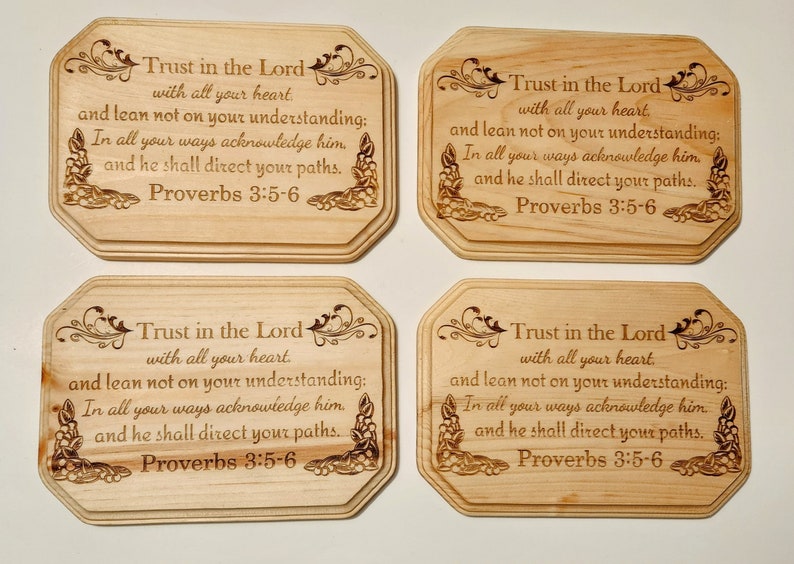 Trust in the Lord
with all your heart,
and lean not on your understanding;
In all your ways acknowledge him,
and he shall direct your paths.
Proverbs 3:5-6
Trust in the Lord
with all your heart,
and lean not on your understanding;
In all your ways acknowledge him,
and he shall direct your paths.
Proverbs 3:5-6
Trust in the Lord
with all your heart,
and lean not on your understanding;
In all your ways acknowledge him,
and he shall direct your paths.
Proverbs 3:5-6
Trust in the Lord
with all your heart,
and lean not on your understanding;
In all your ways acknowledge him,
and he shall direct your paths.
Proverbs 3:5-6